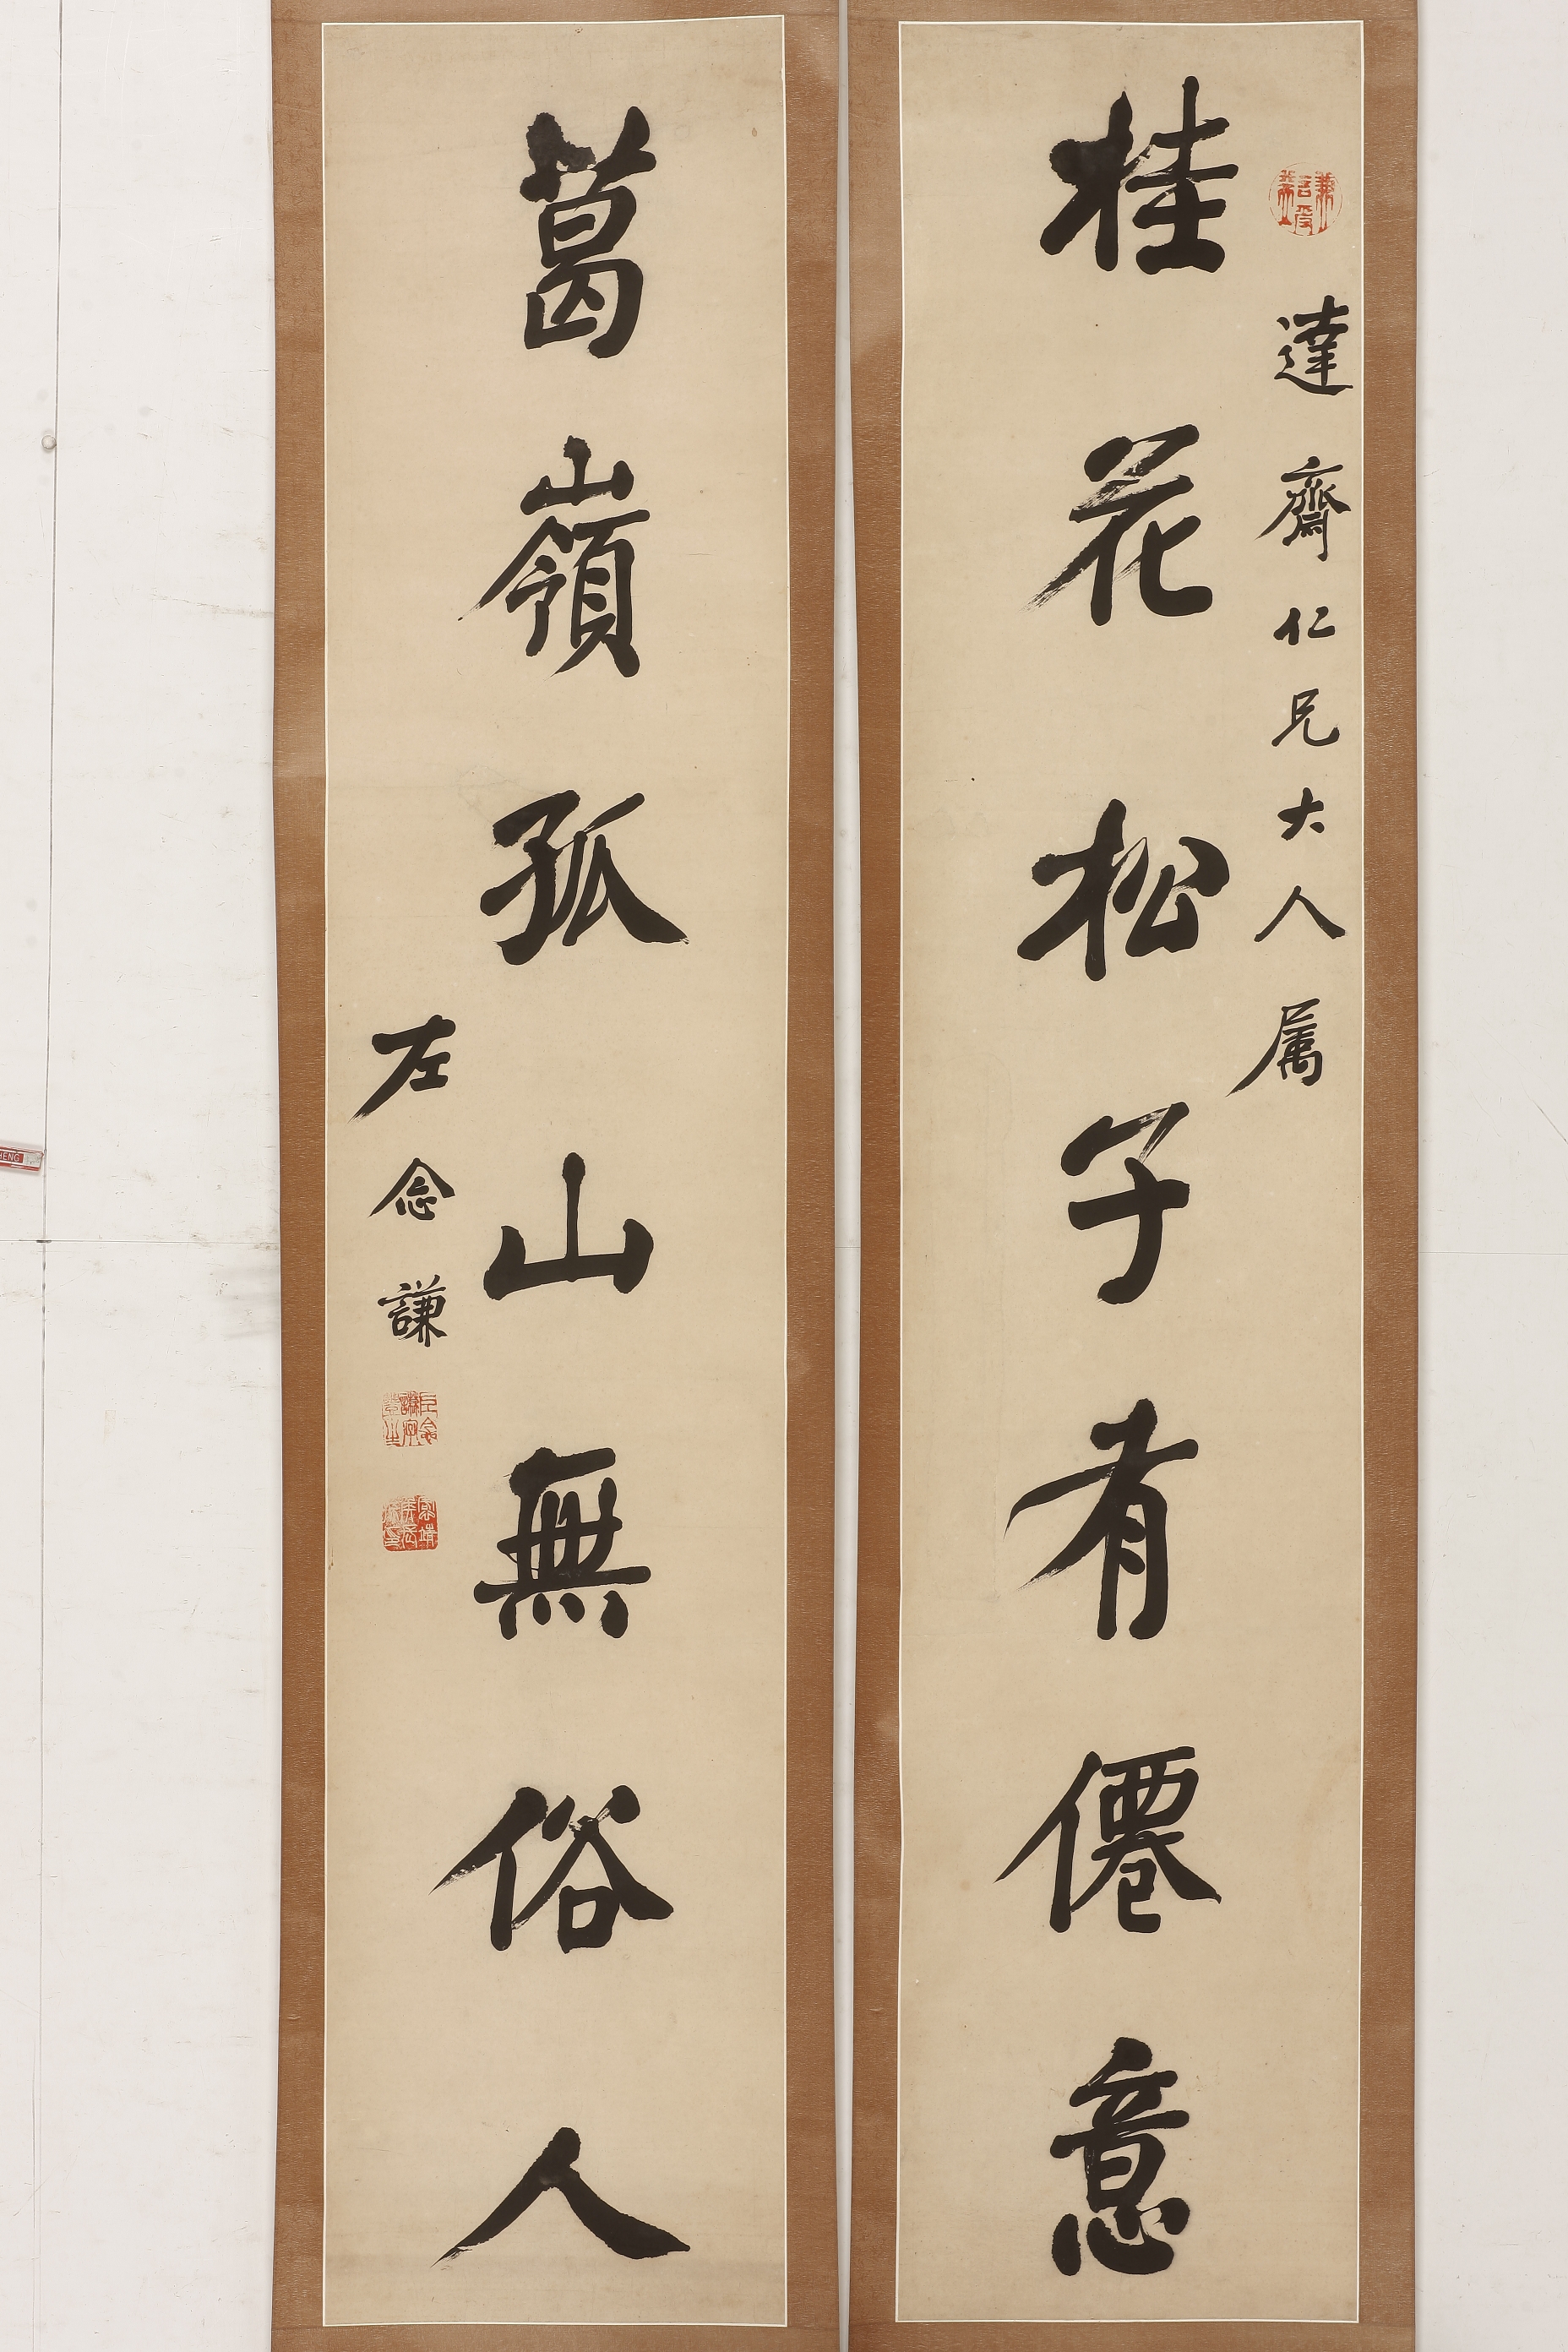 達齋仁兄大人属
桂花松子有僊意
葛嶺孤山無俗人
左念謙